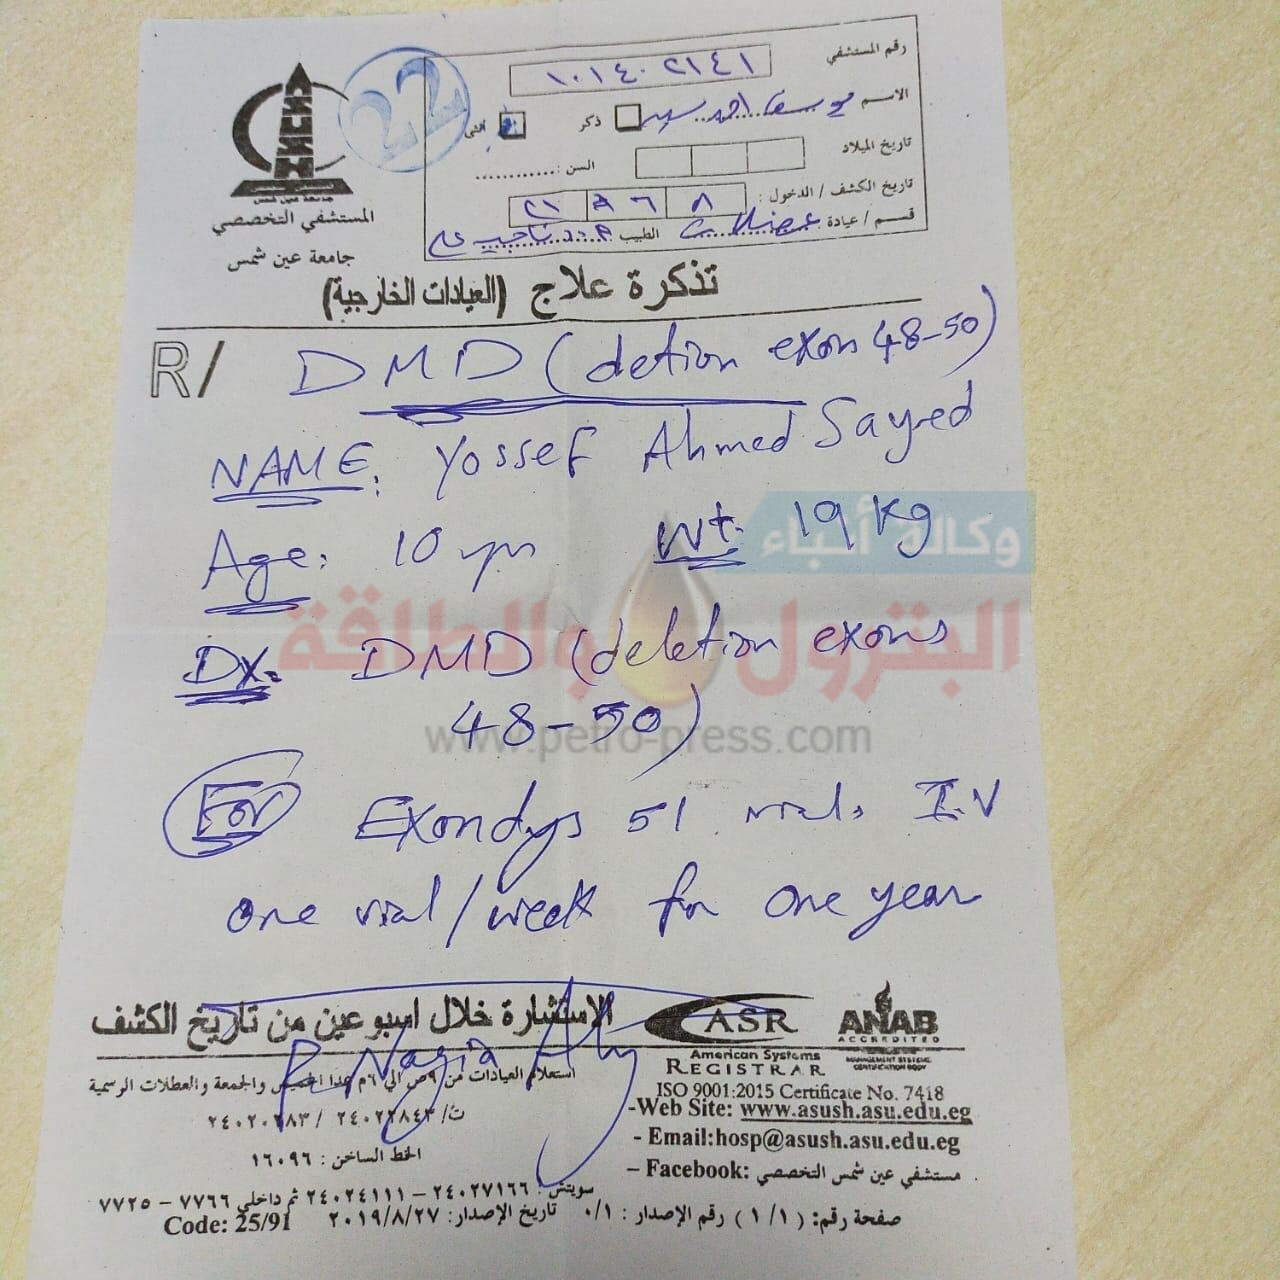 رقم المستشفى
١٠١٤٠٢١٤١
الاسم يوسف احمد سيد
ذكر
أنثى
22
تاريخ الميلاد
السن :
تاريخ الكشف / الدخول :
٨
٢١
قسم / عيادة عضلات الطبيب
جامعة عين شمس
المستشفي التخصصي
جامعة عين شمس
تذكرة علاج (العيادات الخارجية)
R/ DMD (detion exon 48-50)
NAME: Yossef Ahmed Sayed
Age: 10 yrs Wt. 19 kg
Dx. DMD (deletion exons
48-50)
For Exondys 51 vials I.V
one vial/week for one year
وكالة أنباء
البترول والطاقة
www.petro-press.com
الاستشارة خلال اسبوعين من تاريخ الكشف
P. Nagia Aly
استعلام العيادات من ٩ص الي ٦م عدا الخميس والجمعة والعطلات الرسمية
ت/ ٢٤٠٢٢٨٤٣ / ٢٤٠٢٠٢٨٣
الخط الساخن : ١٦٠٩٦
سويتش : ٢٤٠٢٧١٦٦ – ٢٤٠٢٤١١١ ثم داخلي ٧٧٦٦ – ٧٧٢٥
ASR
American Systems
REGISTRAR
ANAB
ACCREDITED
MANAGEMENT SYSTEMS
CERTIFICATION BODY
ISO 9001:2015 Certificate No. 7418
-Web Site: www.asush.asu.edu.eg
- Email:hosp@asush.asu.edu.eg
– Facebook: مستشفي عين شمس التخصصي .
صفحة رقم: (١/١) رقم الإصدار : ٠/١ تاريخ الإصدار: ٢٠١٩/٨/٢٧ Code: 25/91